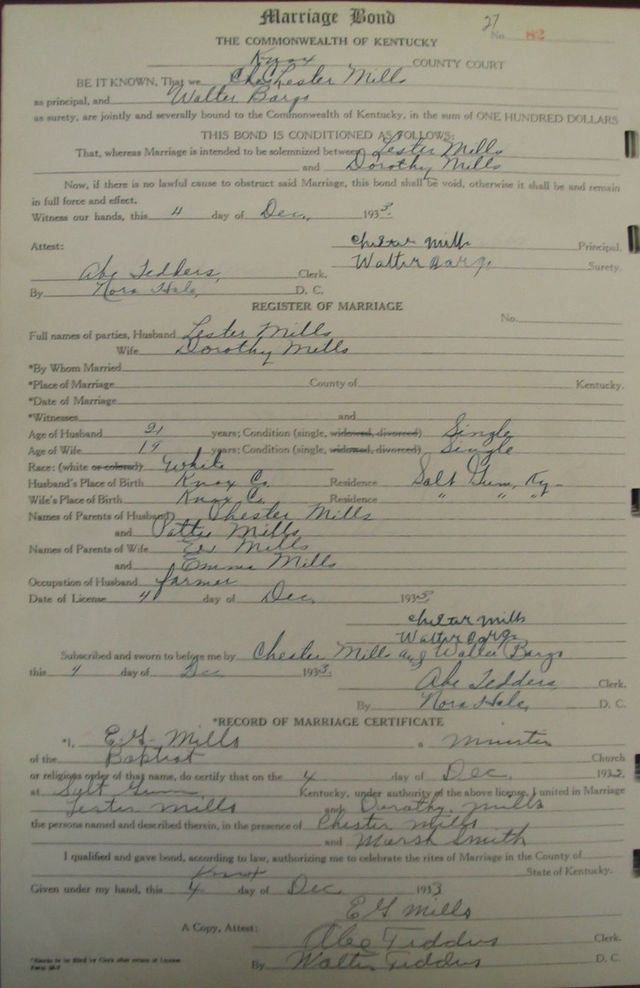 Marriage Bond
27
No. 82
THE COMMONWEALTH OF KENTUCKY
Knox COUNTY COURT
BE IT KNOWN, That we Chester Mills
as principal, and Walter Bargo
as surety, are jointly and severally bound to the Commonwealth of Kentucky, in the sum of ONE HUNDRED DOLLARS
THIS BOND IS CONDITIONED AS FOLLOWS:
That, whereas Marriage is intended to be solemnized between Lester Mills
and Dorothy Mills
Now, if there is no lawful cause to obstruct said Marriage, this bond shall be void, otherwise it shall be and remain
in full force and effect.
Witness our hands, this 4 day of Dec, 1933.
Attest: Chester Mills Principal.
Walter Bargo Surety.
Abe Tedders, Clerk.
By Nora Hale, D. C.
REGISTER OF MARRIAGE
No.
Full names of parties, Husband Lester Mills
Wife Dorothy Mills
*By Whom Married
*Place of Marriage County of Kentucky.
*Date of Marriage
*Witnesses and
Age of Husband 21 years; Condition (single, widowed, divorced) Single
Age of Wife 19 years; Condition (single, widowed, divorced) Single
Race: (white or colored) White
Husband's Place of Birth Knox Co. Residence Salt Gum, Ky.
Wife's Place of Birth Knox Co. Residence " " "
Names of Parents of Husband Chester Mills
and Pattie Mills
Names of Parents of Wife Ed Mills
and Emma Mills
Occupation of Husband farmer
Date of License 4 day of Dec. 1933.
Chester Mills
Walter Bargo
Subscribed and sworn to before me by Chester Mills and Walter Bargo
this 4 day of Dec 1933.
Abe Tedders, Clerk.
By Nora Hale, D. C.
*RECORD OF MARRIAGE CERTIFICATE
*I, E. G. Mills a Minister
of the Baptist Church
or religious order of that name, do certify that on the 4 day of Dec. 1933.
at Salt Gum, Kentucky, under authority of the above license, I united in Marriage
Lester Mills and Dorothy Mills
the persons named and described therein, in the presence of Chester Mills
and Marsh Smith
I qualified and gave bond, according to law, authorizing me to celebrate the rites of Marriage in the County of
Knox State of Kentucky.
Given under my hand, this 4 day of Dec 1933
E G Mills
A Copy, Attest: Abe Tedders Clerk.
By Walter Tedders D. C.
*Blanks to be filled by Clerk after return of License